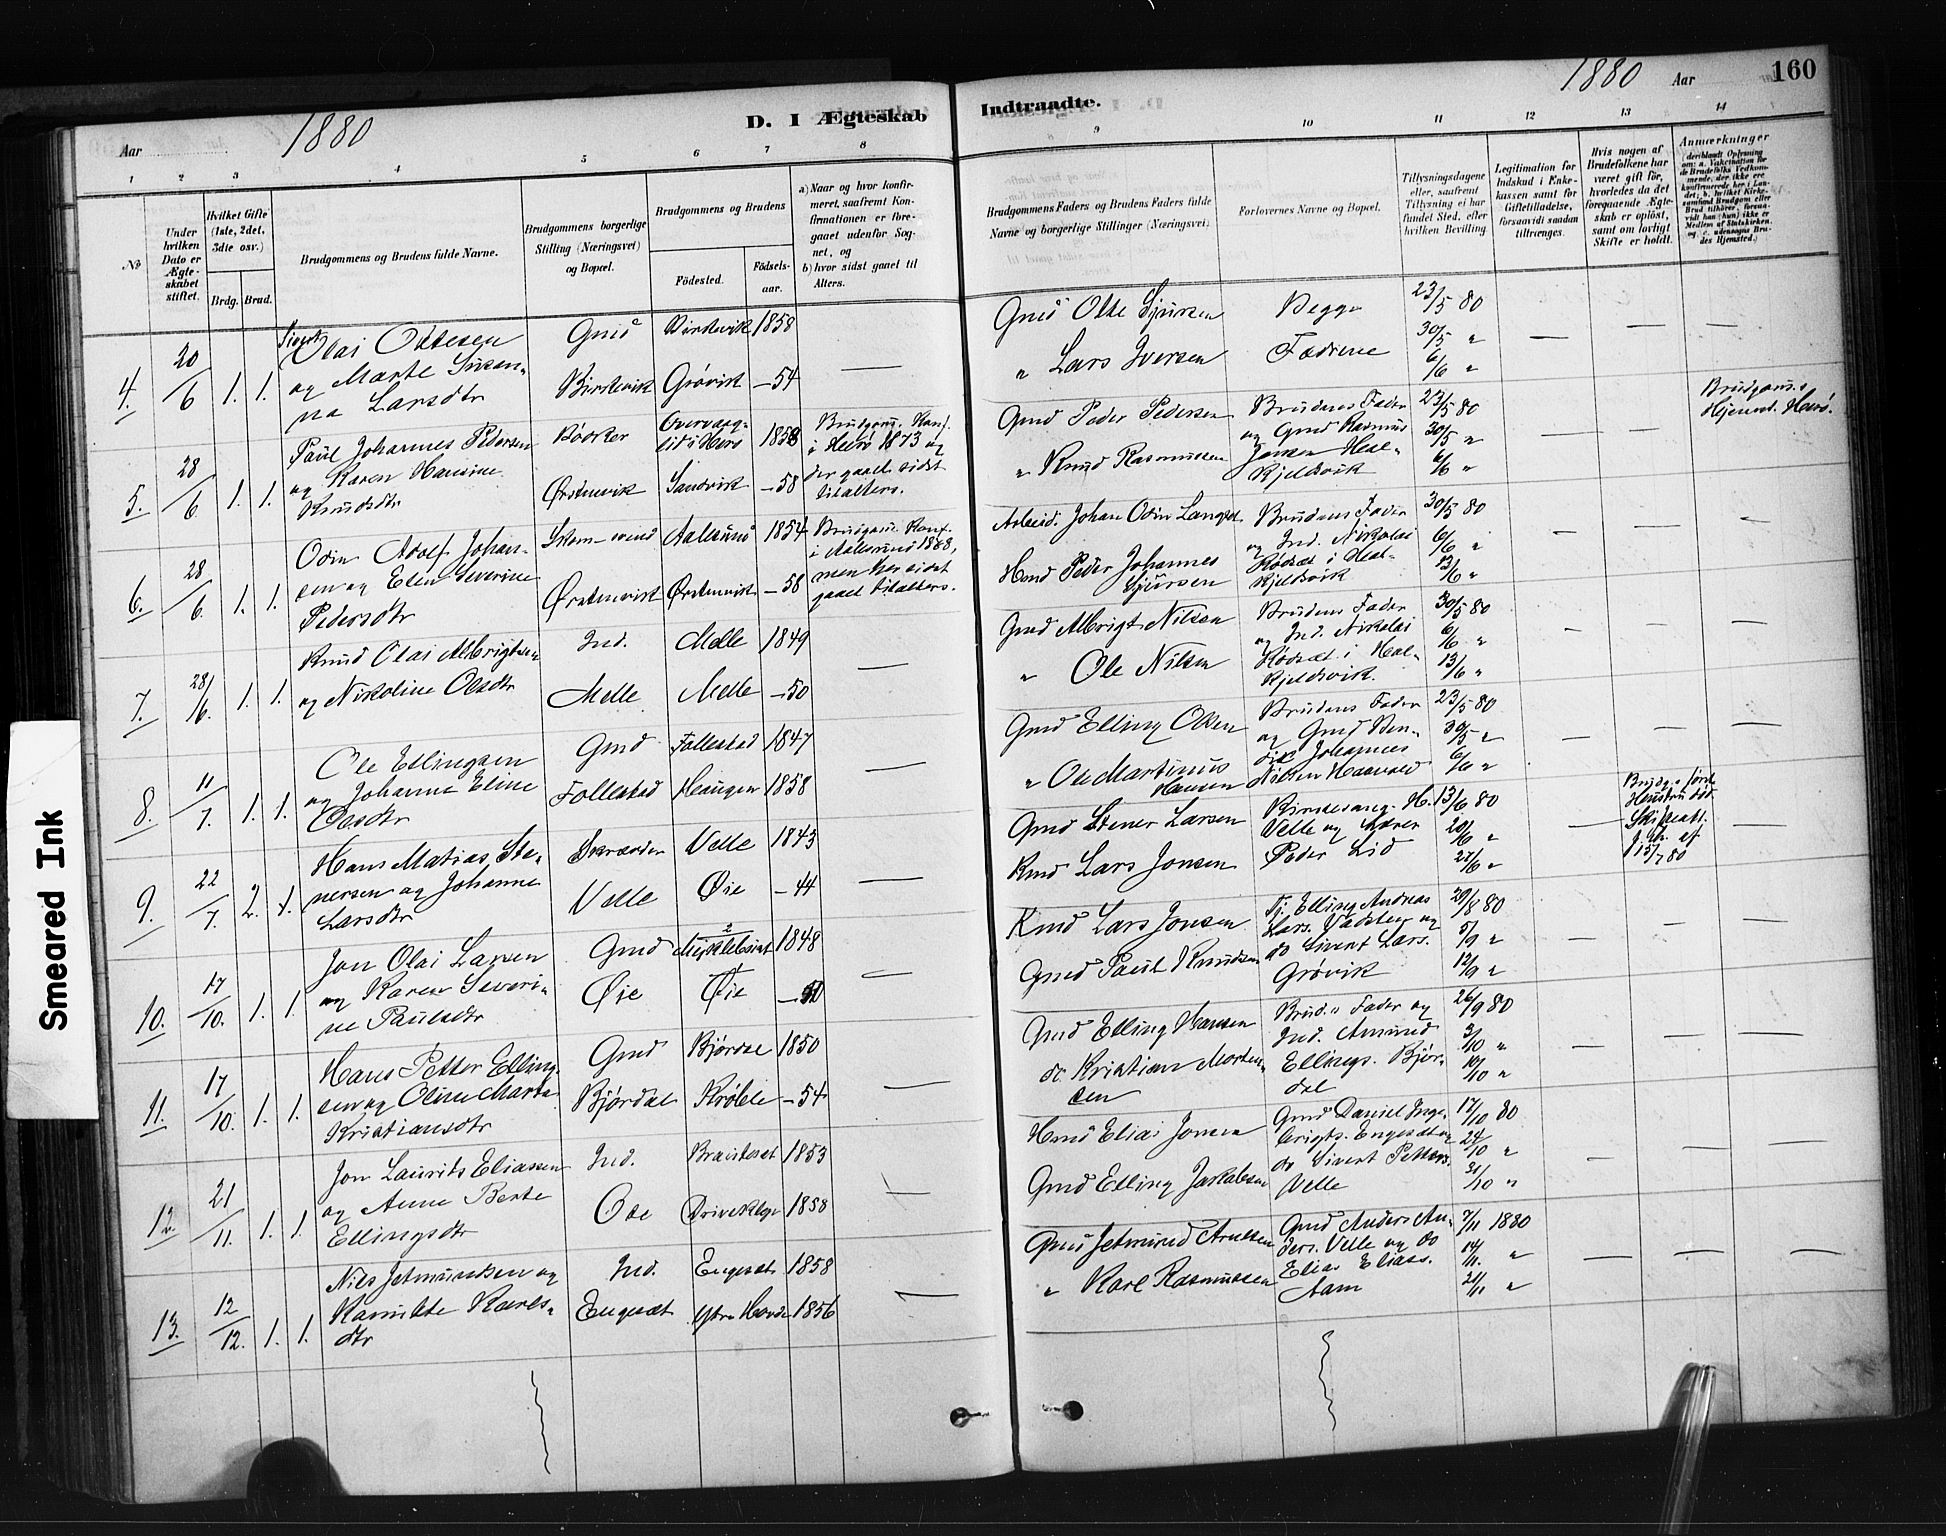 Smeared Ink
Aar 1880
D. I Ægteskab
Indtraadte.
1880 Aar
160
1 2 3 4 5 6 7 8
9 10 11 12 13 14
No
Under hvilken Dato er Ægte-skabet stiftet.
Hvilket Gifte (1ste, 2det, 3dte osv.)
Brdg. Brud.
Brudgommens og Brudens fulde Navne.
Brudgommens borgerlige Stilling (Næringsvei) og Bopæl.
Brudgommens og Brudens
Födested.
Födsels-aar.
a) Naar og hvor konfir-meret, saafremt Kon-firmationen er fore-gaaet udenfor Sog-net, og
b) hvor sidst gaaet til Alters.
Brudgommens Faders og Brudens Faders fulde Navne og borgerlige Stillinger (Næringsvei)
Forlovernes Navne og Bopæl.
Tillysningsdagene eller, saafremt Tillysning ei har fundet Sted, efter hvilken Bevilling
Legitimation for Indskud i Enke-kassen samt for Giftetilladelse, forsaavidt saadan tiltrænges.
Hvis nogen af Brudefolkene har været gift för, hvorledes da det foregaaende Ægte-skab er oplöst, samt om lovligt Skifte er holdt.
Anmærkninger
4. 20/6 1. 1.
Sivert Olai Ottesen
og Marte Susan-
na Larsdtr
Gmd
Birkevik
Birkevik 1858
Grøvik -54
Gmd Otte Sjursen
" Lars Iversen
Begge
Fædrene
23/5 80
30/5 "
6/6 "
5. 28/6. 1. 1.
Paul Johannes Pedersen
og Karen Hansine
Knudsdtr
Bödker
Ørstenvik
1858
Sandvik -58
Brudgom. Konf.
i Herø 1873 og
der gaaet sidst
tilalters.
Gmd Peder Pedersen
" Knud Rasmussen
Brudens Fader
og Gmd Rasmus
Jensen Hal-
kjeldsvik
23/5 80
30/5 "
6/6 "
Brudgoms.
Hjemst. Herö.
6. 28/6. 1. 1.
Odin Adolf Johan-
sen og Elen Severine
Pedersdtr
Ørstenvik
Aalesund 1854
Ørstenvik -58
Brudgom. Konf.
i Aalesund 1868,
men her sidst
gaaet tilalters.
Arbeid. Johan Odin
Hmd Peder Johannes
Sjursen
Brudens Fader
og Ind. Nikolai
Rødsæt i Hal-
kjeldsvik
30/5 80
6/6 "
13/6 "
7. 28/6. 1. 1.
Knud Olai Albrigtsen
og Nikoline Olsdtr
Ind.
Melle
Melle 1849
Melle -50
Gmd Albrigt Nilsen
" Ole Nilsen
Brudens Fader
og Ind. Nikolai
Rødsæt i Hal-
kjeldsvik.
30/5 80
6/6 "
13/6 "
8. 11/7. 1. 1.
Ole Ellingsen
og Johanne Eline
Olsdtr
Gmd
Follestad
Follestad 1847
Haugen 1858
Gmd Elling Olsen
" Ole Martinus
Hansen
Brudens Fader
og Gmd Ben-
dik Johannes
Nilsen
23/5 80
30/5 "
6/6 "
9. 22/7. 2. 1.
Hans Matias Ste-
nersen og Johanne
Larsdtr
Skrædder
Velle
Velle 1843
Øie -44
Gmd Stener Larsen
Kmd Lars Jonsen
Velle og
Peder Lid
13/6 80
20/6 "
27/6 "
Brudg.s först
Hustru död.
Skifteatt.
af
15/7 80
10. 17/10. 1. 1.
Jon Olai Larsen
og Karen Severi-
ne Paulsdtr
Gmd
Øie
1848
Øie
Kmd Lars Jonsen
Gmd Paul Knudsen
Elling Andreas
Lars. Vadsten og
do Sivert Lars.
Grövik
29/8 80
5/9 "
12/9 "
11. 17/10. 1. 1.
Hans Petter Elling-
sen og Oline Marta
Kristiansdtr
Gmd
Bjørdal
Bjørdal 1850
-54
Gmd Elling Hansen
do. Kristian Morten-
sen
Brud.s Fader og
Ind. Amund
Ellings. Bjør-
dal
26/9 80
3/10 "
10/10 "
12. 21/11. 1. 1.
Jon Laurits Eliassen
og Anne Berte
Ellingsdtr
Ind.
Ose
1853
1858
Hmd Elias Jonsen
Gmd Elling Jakobsen
Gmd Daniel Inge-
brigts. Engesæt og
do Sivert Petters.
Velle
17/10 80
24/10 "
31/10 "
13. 12/12. 1. 1.
Nils Jetmundsen og
Kamilte Karls-
dtr
Ind.
Engesæt
Engesæt 1858
Ytre Hovde 1856
Gmd Jetmund Arnesen
" Karl Rasmussen
Gmd Anders An-
ders. Velle og do
Elias Eliass.
Aam
7/11 1880
14/11. "
21/11 "